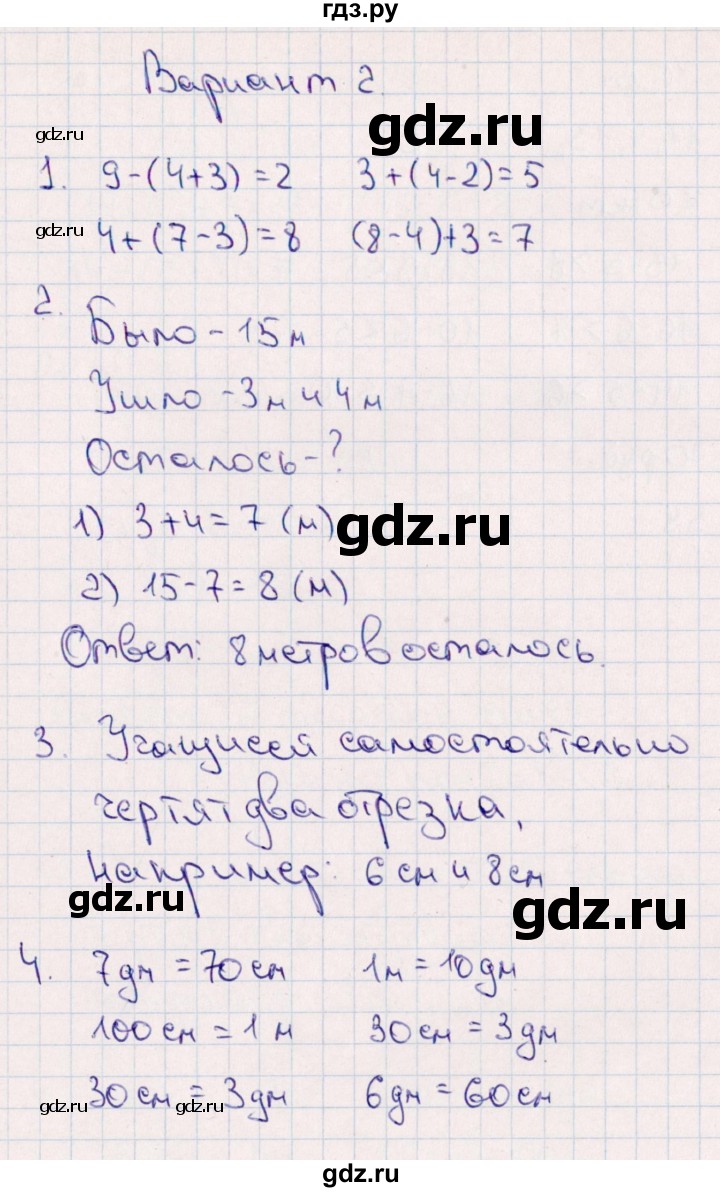 гдз.ру
Вариант 2.
gdz.ru
gdz.ru
1. 9-(4+3)=2 3+(4-2)=5
gdz.ru
4+(7-3)=8 (8-4)+3=7
2.
Было - 15 м
Ушло - 3 м и 4 м
Осталось - ?
1) 3+4=7 (м)
gdz.ru
2) 15-7=8 (м)
Ответ: 8 метров осталось.
3. Учащиеся самостоятельно
чертят два отрезка,
например: 6 см и 8 см
gdz.ru
gdz.ru
4. 7 дм = 70 см 1 м = 10 дм
100 см = 1 м 30 см = 3 дм
30 см = 3 дм 6 дм = 60 см
gdz.ru
gdz.ru
gdz.ru